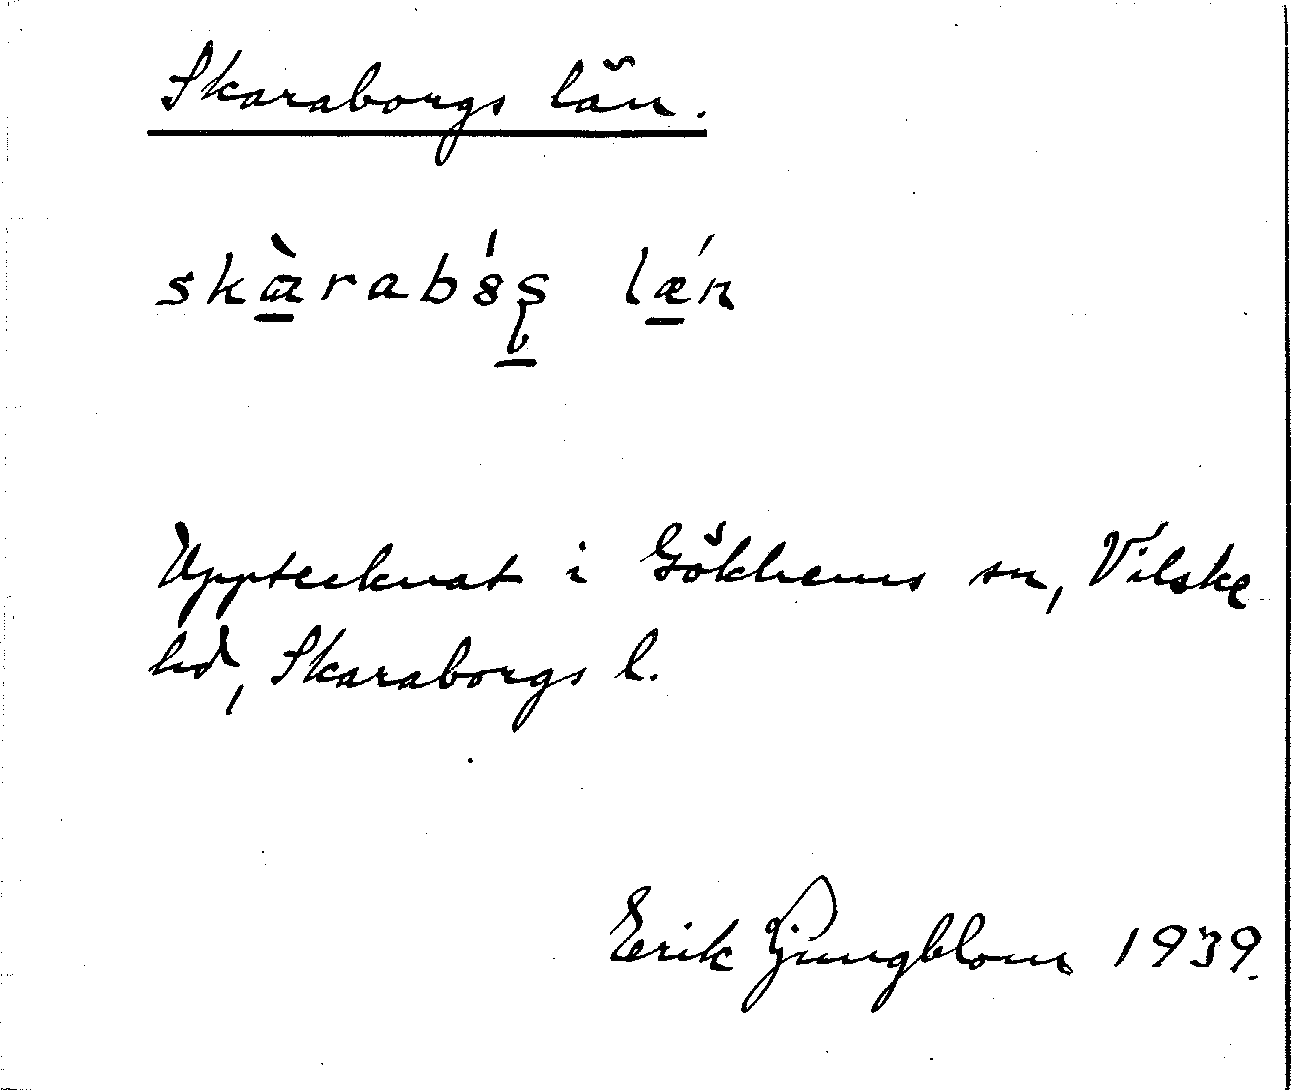 Skaraborgs län.
skàrab8́ʂ lǽn
Upptecknat i Gökhems sn, Vilske
hd, Skaraborgs l.
Erik Ljungblom 1939.